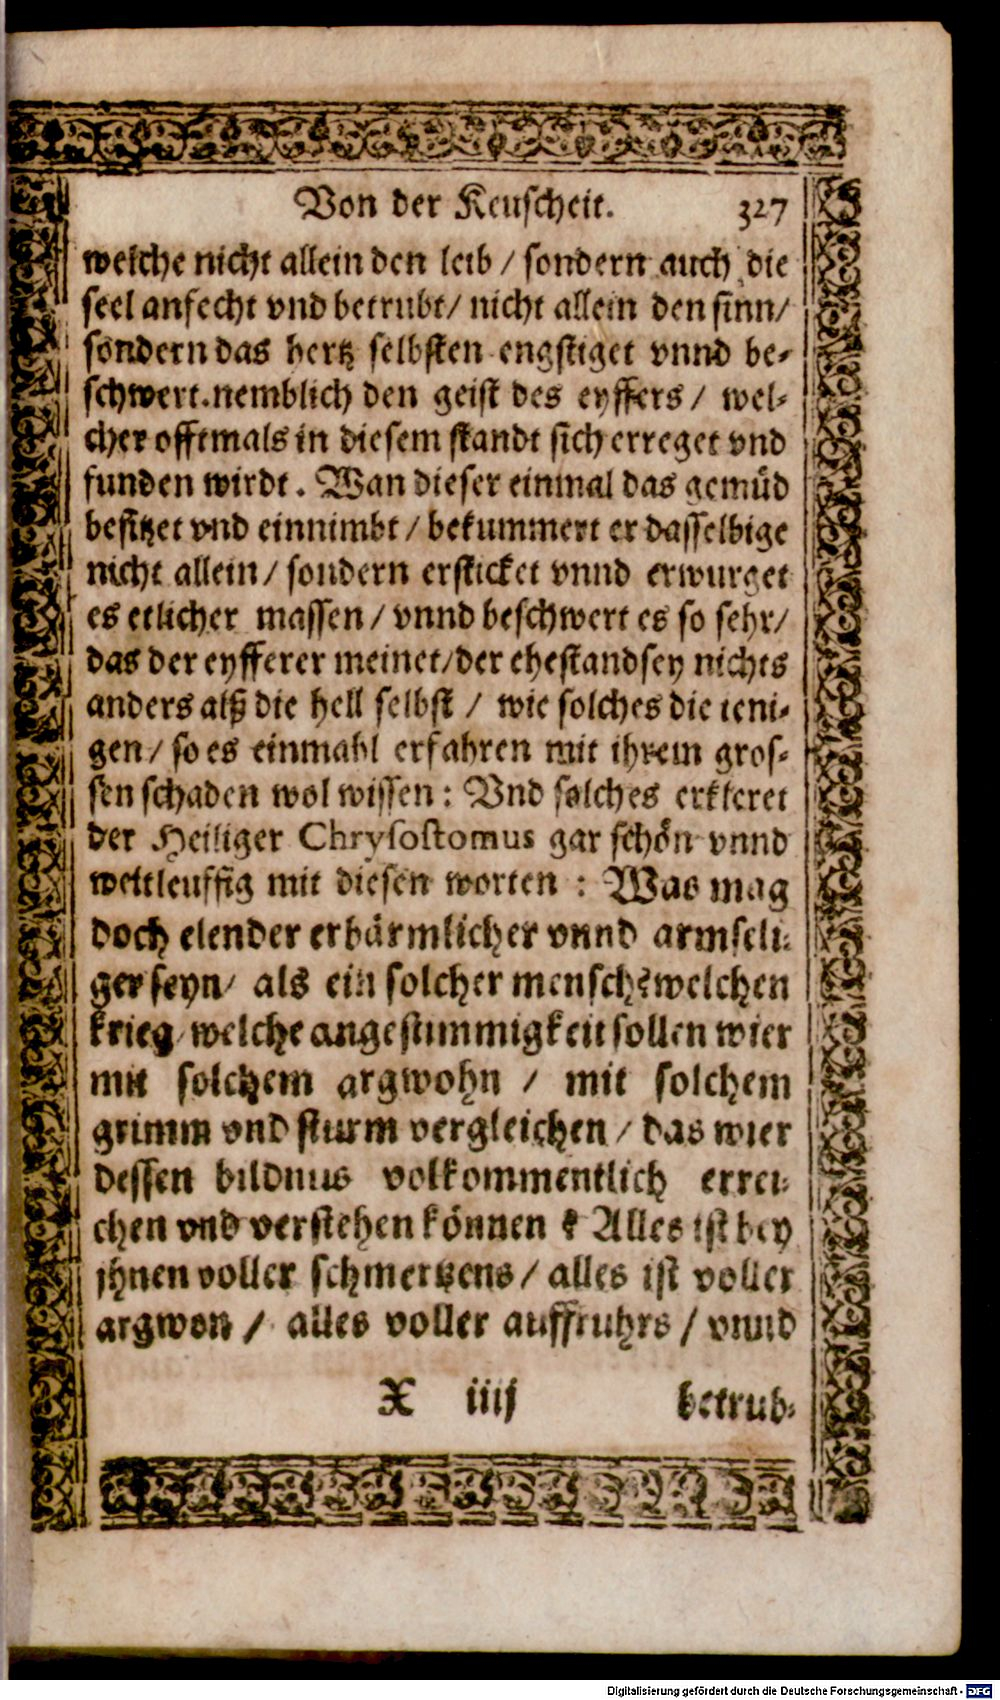 Von der Keuscheit. 327
welche nicht allein den leib / sondern auch die
seel anfecht vnd betrubt / nicht allein den sinn /
sondern das hertz selbsten engstiget vnnd be-
schwert. nemblich den geist des eyffers / wel-
cher offtmals in diesem standt sich erreget vnd
funden wirdt. Wan dieser einmal das gemüd
besitzet vnd einnimbt / bekummert er dasselbige
nicht allein / sondern ersticket vnnd erwurget
es etlicher massen / vnnd beschwert es so sehr /
das der eyfferer meinet / der ehestand sey nichts
anders alß die hell selbst / wie solches die ieni-
gen / so es einmahl erfahren mit ihrem gros-
sen schaden wol wissen : Vnd solches erkleret
der Heiliger Chrysostomus gar schön vnnd
weitleuffig mit diesen worten : Was mag
doch elender erbärmlicher vnnd armseli-
ger seyn / als ein solcher mensch? welchen
krieg / welche angestimmigkeit sollen wier
mit solchem argwohn / mit solchem
grimm vnd sturm vergleichen / das wier
dessen bildnus volkommentlich errei-
chen vnd verstehen können ? Alles ist bey
jhnen voller schmertzens / alles ist voller
argwon / alles voller auffruhrs / vnnd
X iiij betrub-
Digitalisierung gefördert durch die Deutsche Forschungsgemeinschaft - DFG